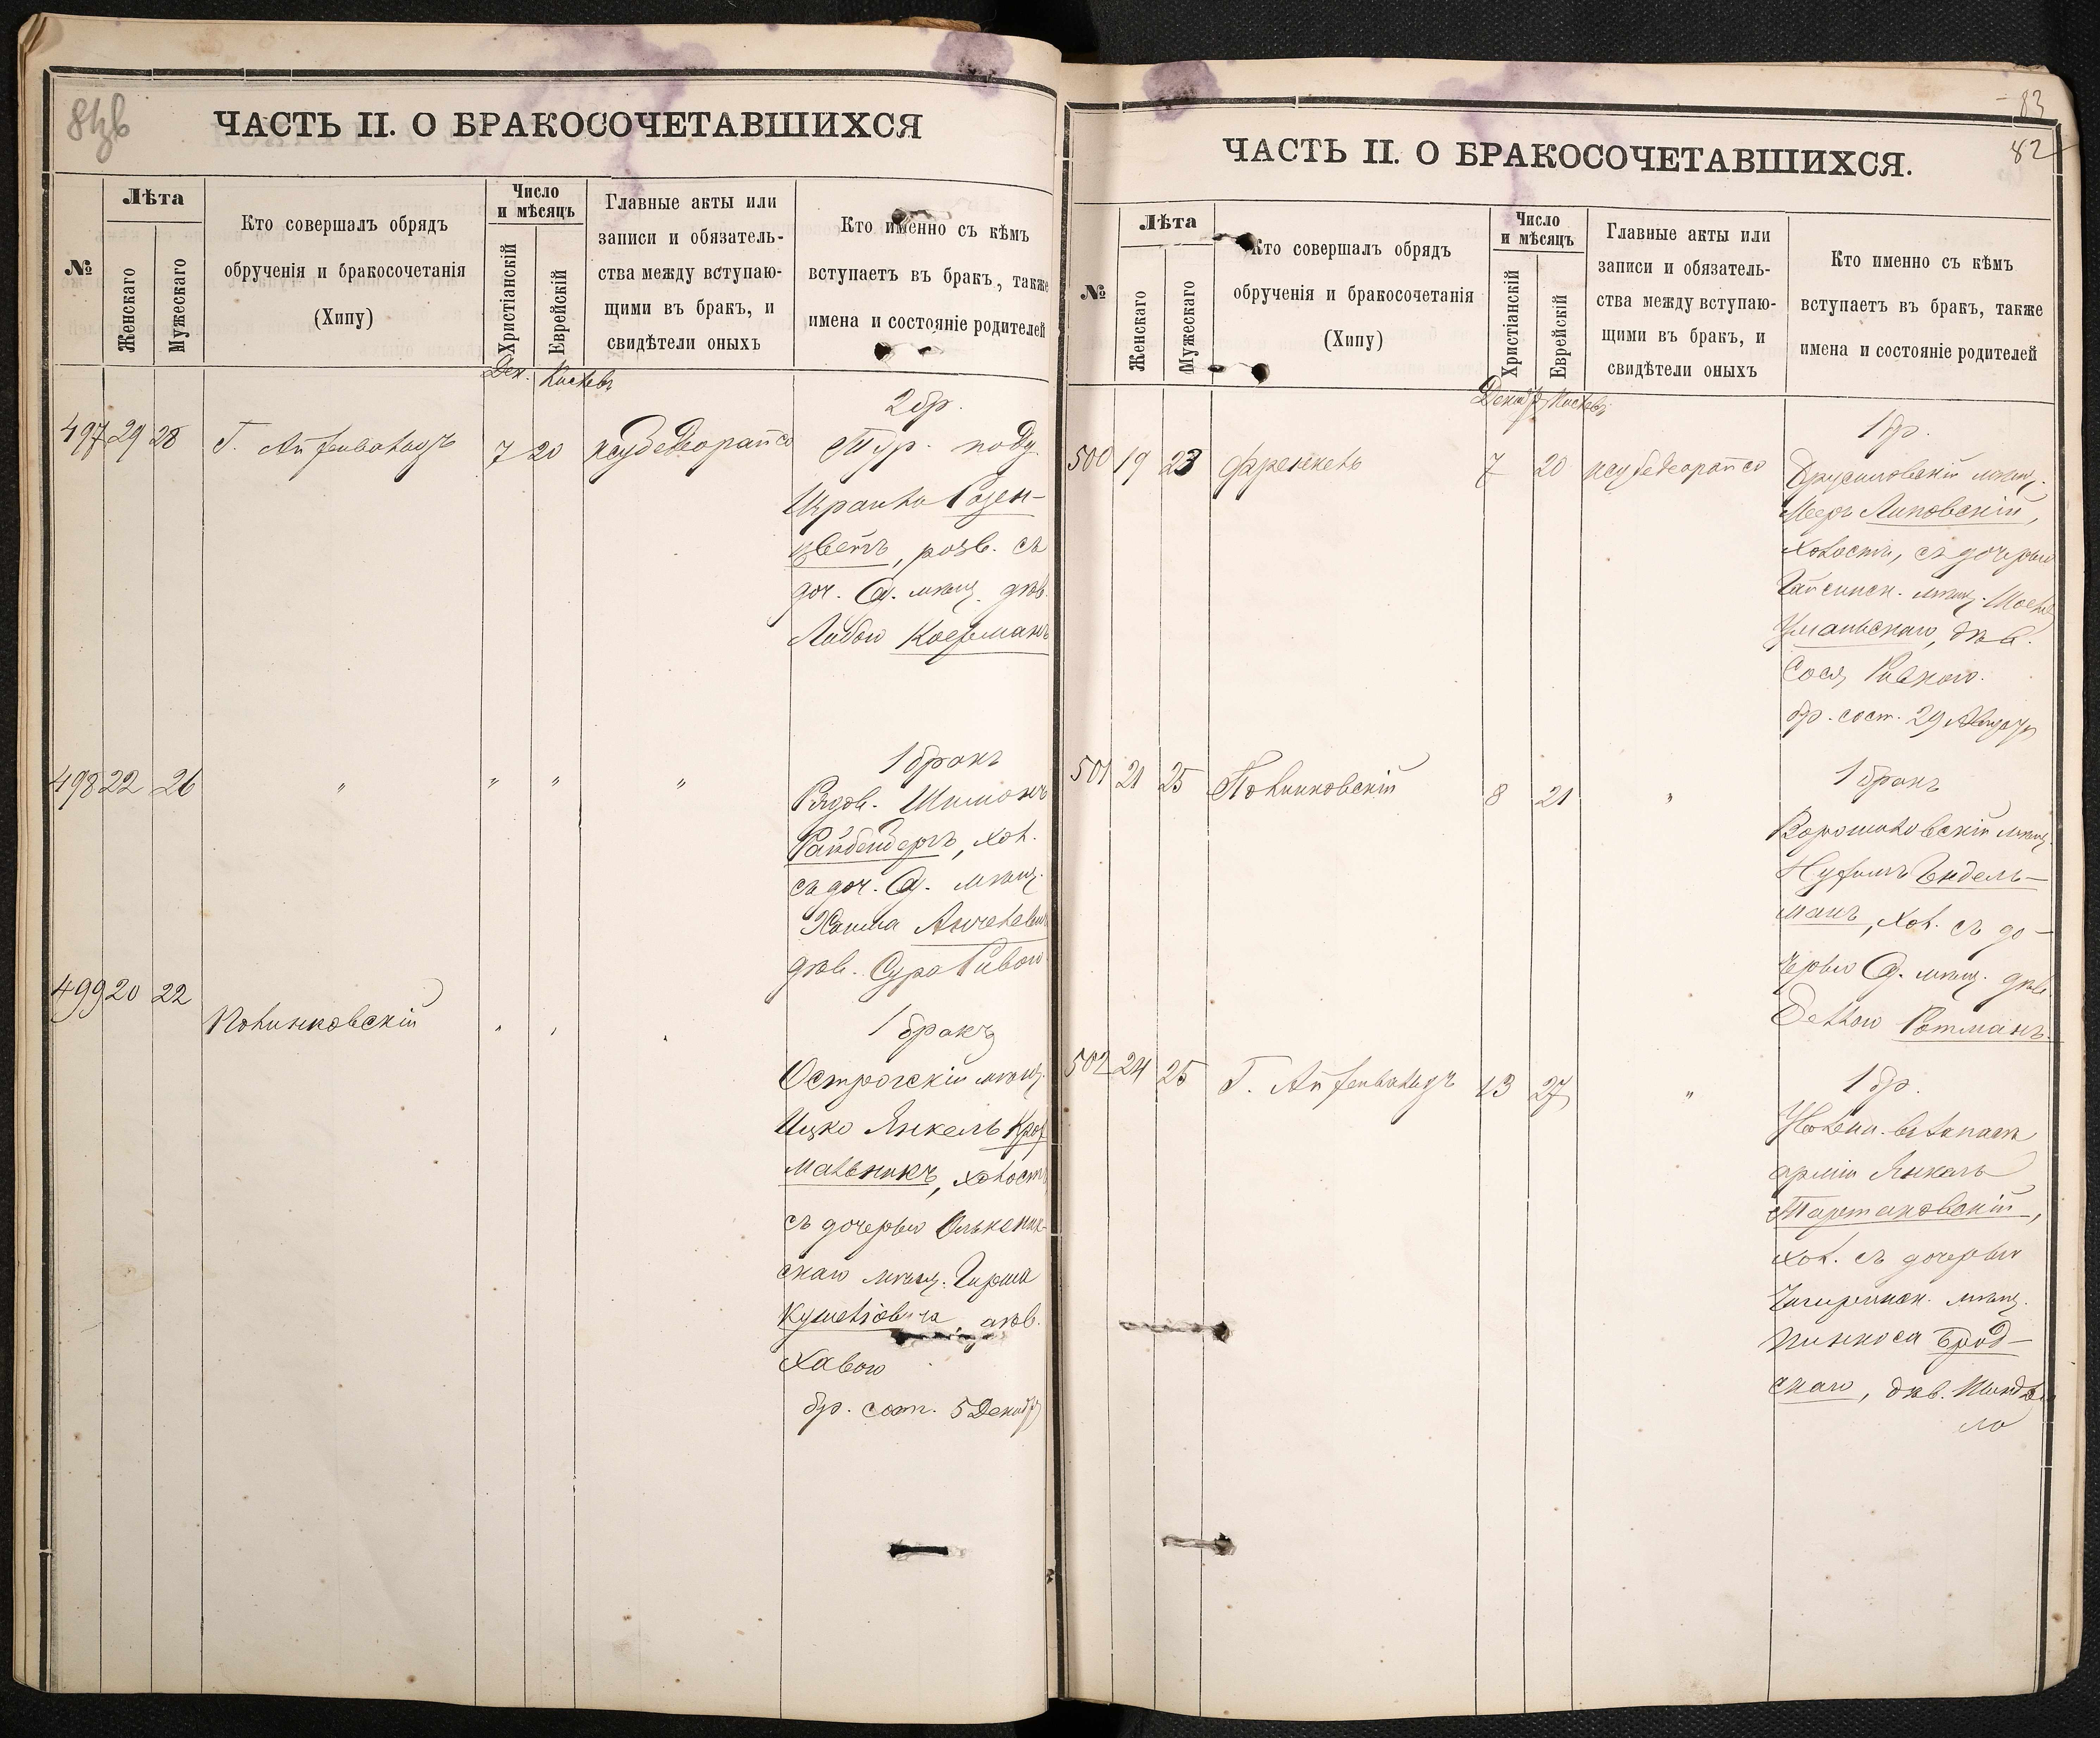 81зв
ЧАСТЬ II. О БРАКОСОЧЕТАВШИХСЯ
№
Лѣта
Женскаго
Мужескаго
Кто совершалъ обрядъ
обрученія и бракосочетанія
(Хипу)
Число
и мѣсяцъ
Христіанскій
Еврейскій
Главные акты или
записи и обязатель-
ства между вступаю-
щими въ бракъ, и
свидѣтели оныхъ
Кто именно съ кѣмъ
вступаетъ въ бракъ, также
имена и состояніе родителей
Дек. Кислевъ
497 29 28 Г. 7 20
2 бр.
Израиль Розен-
цвейгъ, розв. съ
доч. О. мѣщ. дѣв.
Любою
498 22 26 " " " "
1 бракъ
Рядов. Шимонъ
хол.
съ доч. О. мѣщ.
Хаима
дѣв. Сура Ривою
499 20 22
Полинковскій " "
1 бракъ
Острогскій мѣщ.
Ицко Янкель КроХ
мальникъ, холостъ
съ дочерью
скаго мѣщ. Гирша
дѣв.
Хавою
бр. сост. 5 Декабр
83
82
ЧАСТЬ II. О БРАКОСОЧЕТАВШИХСЯ.
№
Лѣта
Женскаго
Мужескаго
Кто совершалъ обрядъ
обрученія и бракосочетанія
(Хипу)
Число
и мѣсяцъ
Христіанскій
Еврейскій
Главные акты или
записи и обязатель-
ства между вступаю-
щими въ бракъ, и
свидѣтели оныхъ
Кто именно съ кѣмъ
вступаетъ въ бракъ, также
имена и состояніе родителей
Декабр Кислевъ
500 19 23 Френкель 7 20
1 бр.
Брусиловскій мѣщ.
Мееръ Липовскій,
холостъ, съ дочерью
Гайсинск. мѣщ.
Уманьскаго, дѣв.
Сося Ривкою.
бр. сост. 29
501 21 25 Полинковскій 8 21 "
1 бракъ
Ворошиловскій мѣщ.
Нухимъ Эндель-
манъ, хол. съ до-
черью О. мѣщ. дѣв.
Бейлою Ротманъ.
502 24 25 Г. 13 27 "
1 бр.
арміи Янкель
Тартаковскій,
хол. съ дочерью
Чигиринск. мѣщ.
Пинкоса Брод-
скаго, дѣв.